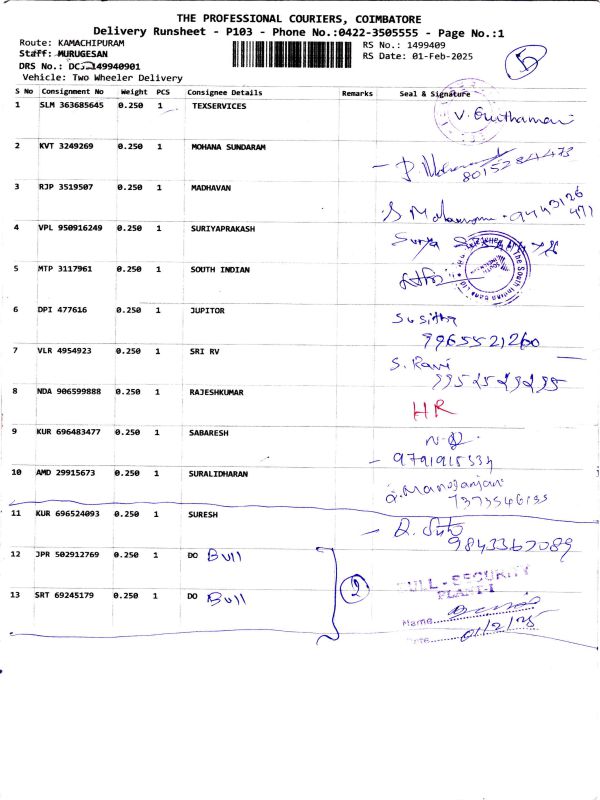 THE PROFESSIONAL COURIERS, COIMBATORE
Delivery Runsheet - P103 - Phone No.:0422-3505555 - Page No.:1
Route: KAMACHIPURAM RS No.: 1499409
Staff: MURUGESAN RS Date: 01-Feb-2025
DRS No.: DCJ-149940901
Vehicle: Two Wheeler Delivery
S No Consignment No Weight PCS Consignee Details Remarks Seal & Signature
1 SLM 363685645 0.250 1 TEXSERVICES
2 KVT 3249269 0.250 1 MOHANA SUNDARAM
8015284473
3 RJP 3519507 0.250 1 MADHAVAN
4 VPL 950916249 0.250 1 SURIYAPRAKASH
Surya
5 MTP 3117961 0.250 1 SOUTH INDIAN
6 DPI 477616 0.250 1 JUPITOR
Susitha
9965521260
7 VLR 4954923 0.250 1 SRI RV
S. Ravi
9952529295
8 NDA 906599888 0.250 1 RAJESHKUMAR
HR
9 KUR 696483477 0.250 1 SABARESH
10 AMD 29915673 0.250 1 SURALIDHARAN
11 KUR 696524093 0.250 1 SURESH
9843367089
12 JPR 502912769 0.250 1 DO Bull
13 SRT 69245179 0.250 1 DO Bull
2
BULL - SECURITY
PLANT-I
Name
Date 01/2/25